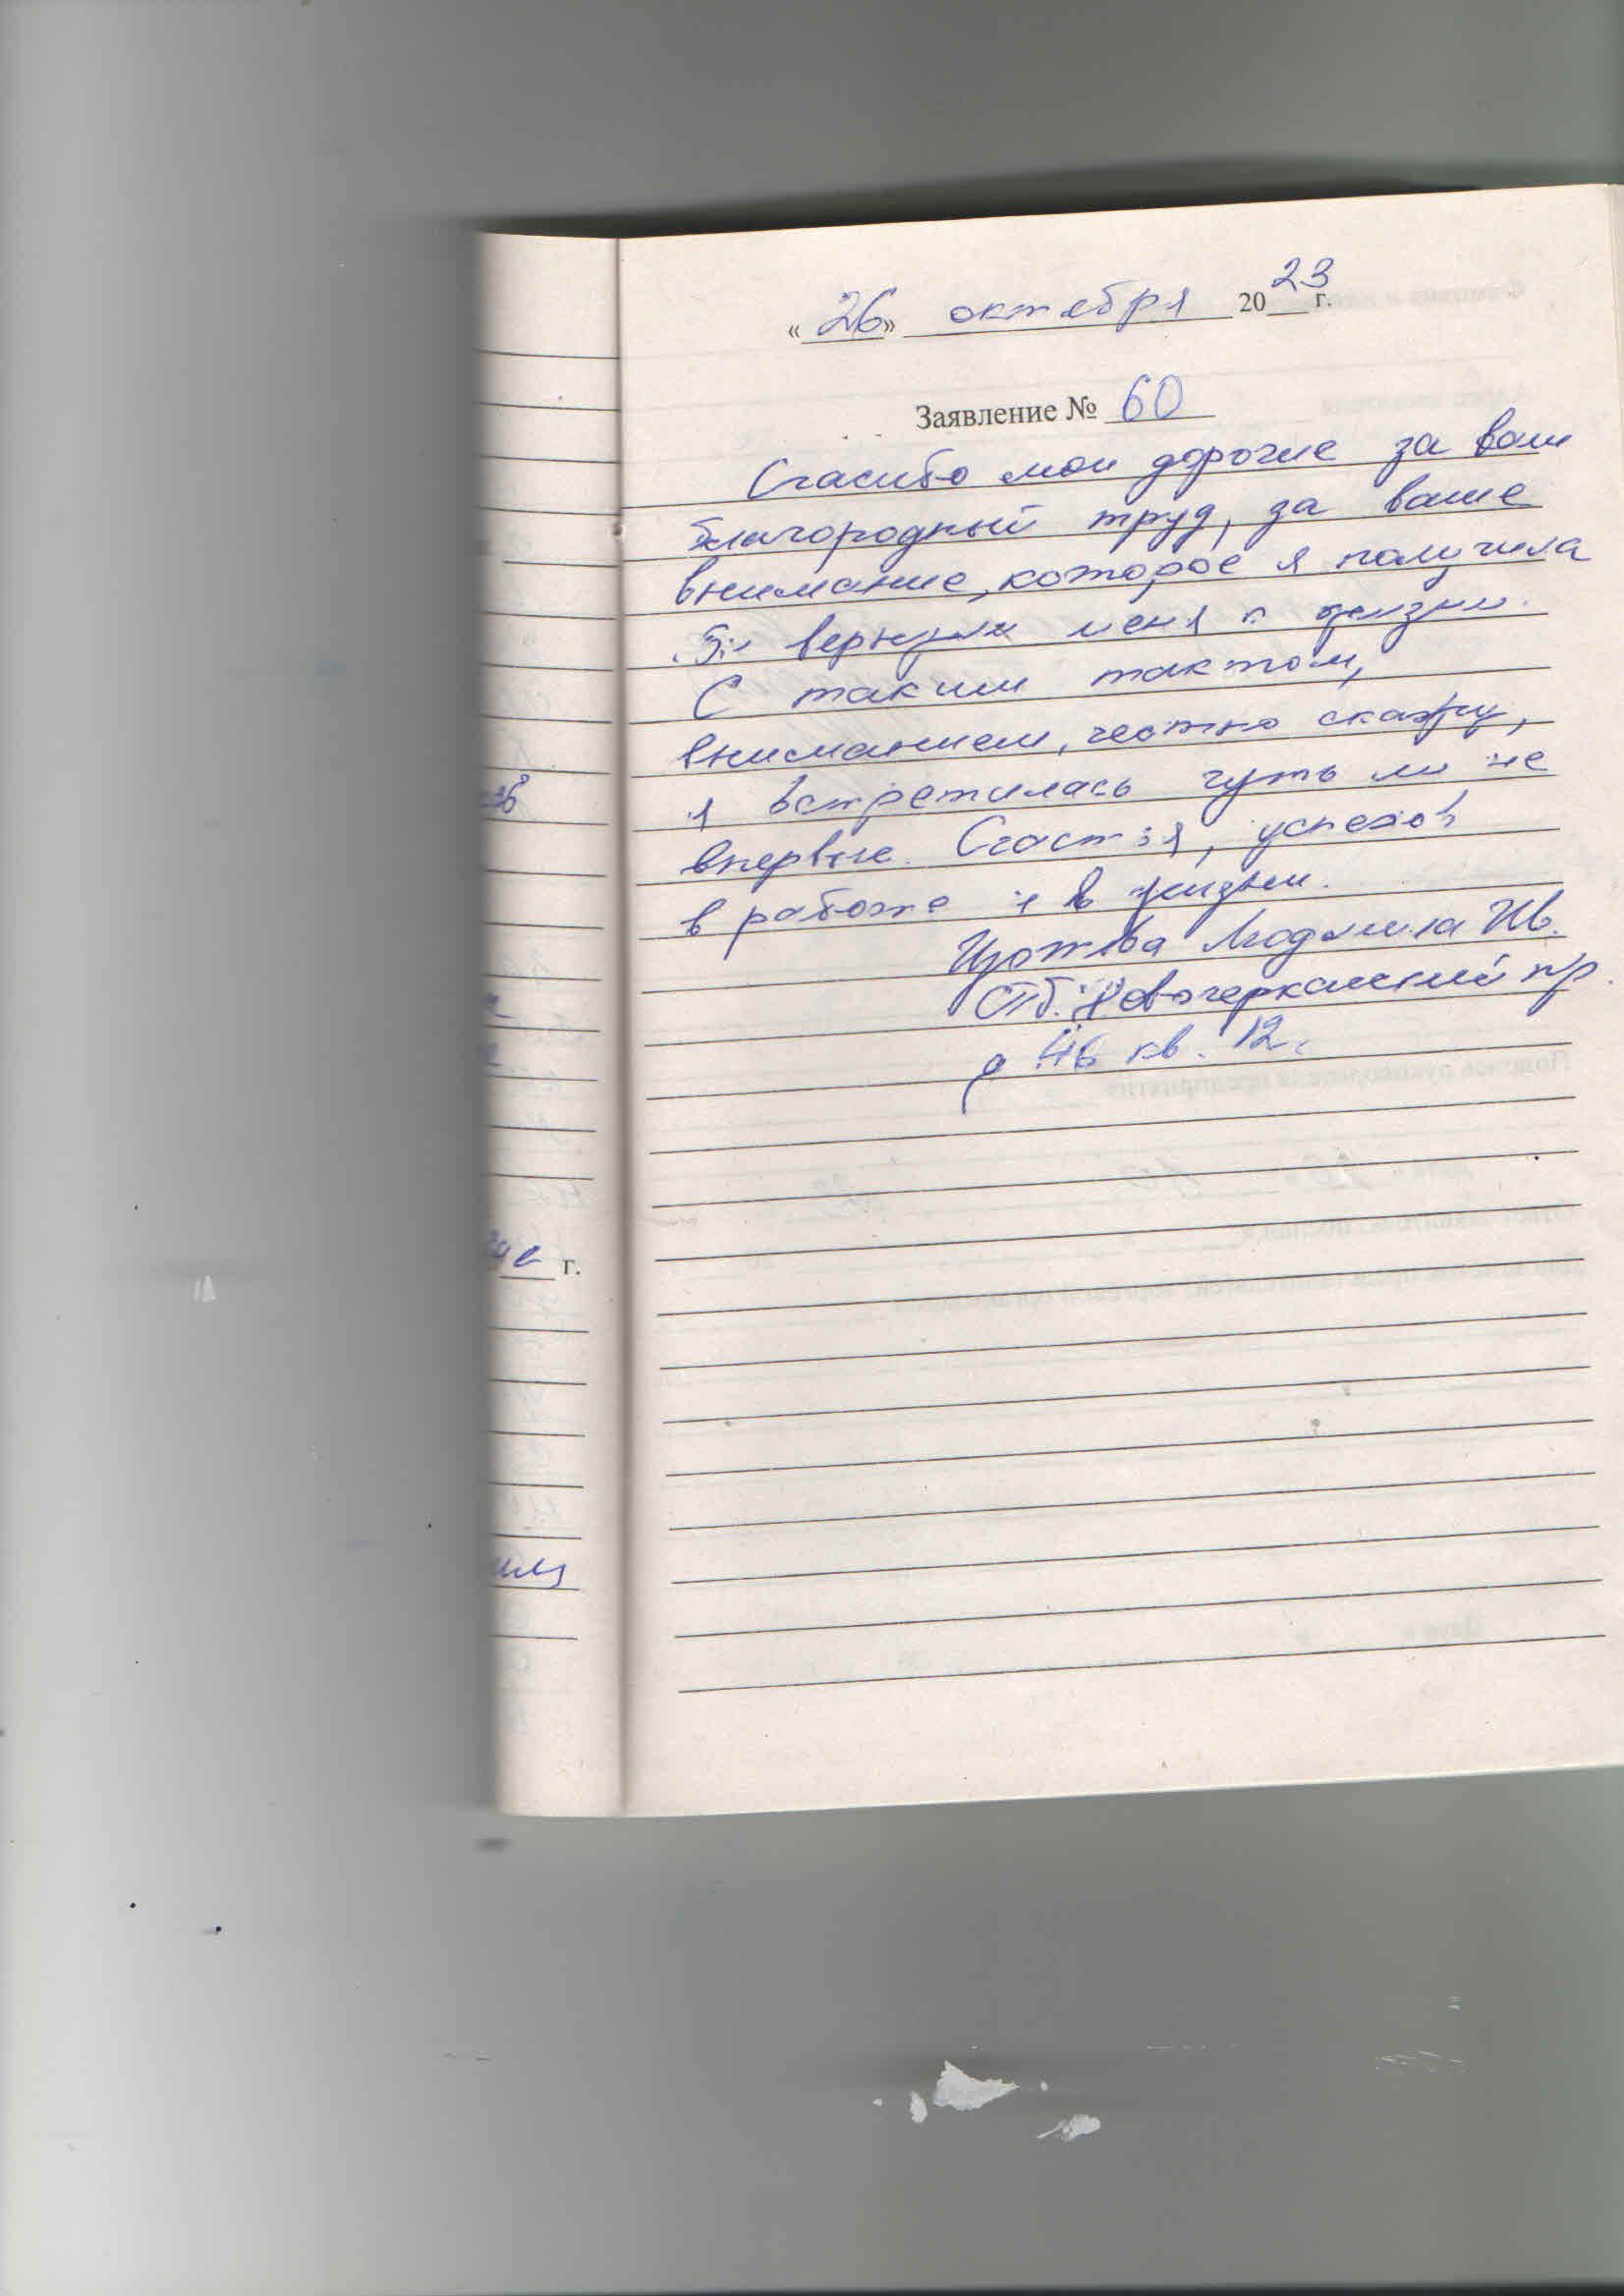 «26» октября 2023 г.
Заявление № 60
Спасибо мои дорогие за ваш
благородный труд, за ваше
внимание, которое я получила
Вы вернули меня к жизни.
С таким тактом,
вниманием, честно скажу,
я встретилась чуть ли не
впервые. Счастья, успехов
в работе и в жизни.
Людмила Ив.
СПб. Новочеркасский пр.
д 46 кв. 12.
г.